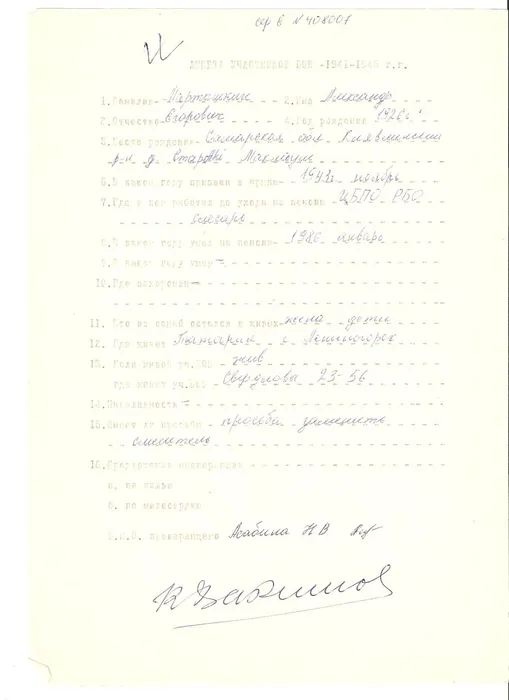 сер В № 408007
АНКЕТА УЧАСТНИКОВ ВОВ -1941-1945 г.г.
1. Фамилия Мартышкин 2. Имя Александр
3. Отчество Егорович 4. Год рождения 1926г.
5. Место рождения Самарская обл. Клявлинский
р-н д. Старый Маклауш
6. В каком году призван в армию 1943г ноябрь
7. Где и кем работал до ухода на пенсию ЦБПО РБО
слесарь
8. В каком году ушел на пенсию 1986 январь
9. В каком году умер -
10. Где захоронен -
11. Кто из семьи остался в живых жена дети
12. Где живет Татария г. Лениногорск
13. Если живой уч. ВОВ - жив
где живет уч. ВОВ Свердлова 23-56
14. Инвалидность -
15. Имеет ли просьбы просьба заменить
смеситель
16.
а. по жилью
б. по
Ф.И.О. Асабина Н В